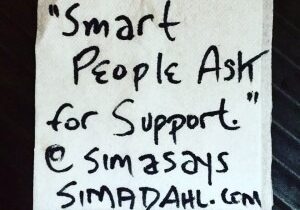 "Smart
People Ask
for Support."
@simasays
SIMADAHL.COM